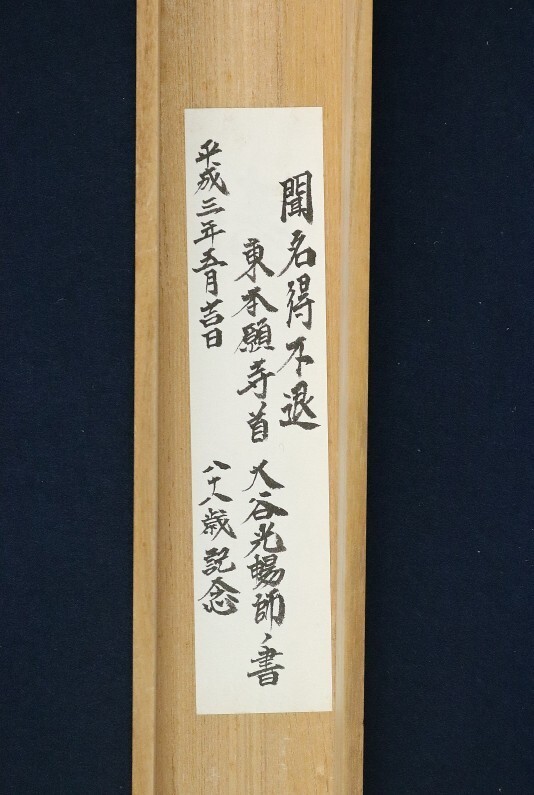 聞名得不退
東本願寺首
大谷光暢師ノ書
平成三年五月吉日
八十八歳記念